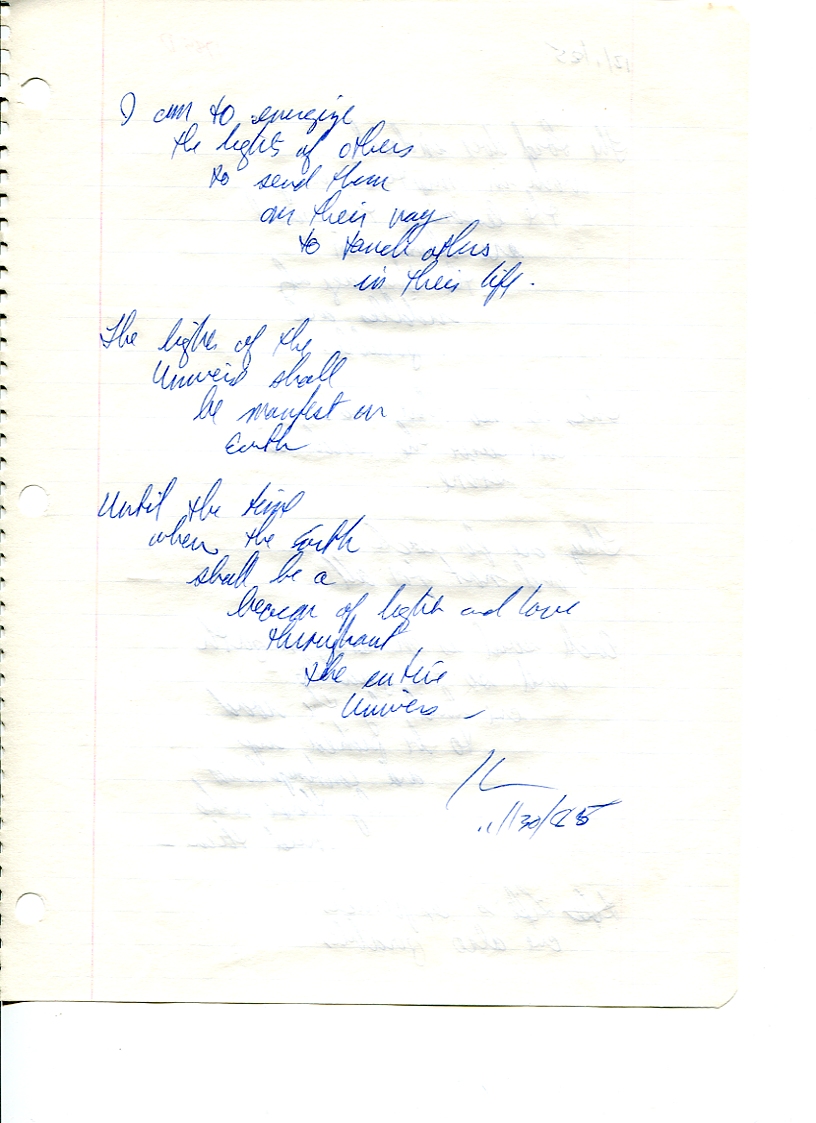 I am to energize
the lights of others
to send them
on their way
to touch others
in their life.
The lights of the
Univers shall
be manifest on
Earth
Until the time
when the Earth
shall be a
beacon of light and love
throughout
the entire
Univers –